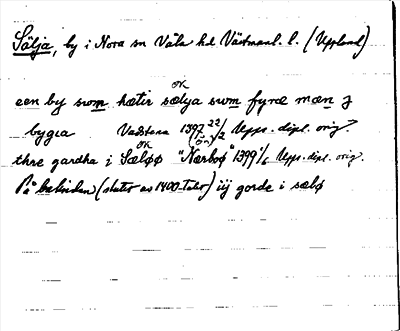 Sälja, by i Nora sn Våla hd Västmanl. l. (Uppland)
OK
een by swm hætir sælya swm fyræ mæn j
bygia Vadstena 1397 22/2 Upps. dipl. orig.
OK
thre gardha i Sæløø "Nærboø" 1399 1/6 Upps. dipl. orig.
På baksidan (slutet av 1400-talet) iij gorde i sælø